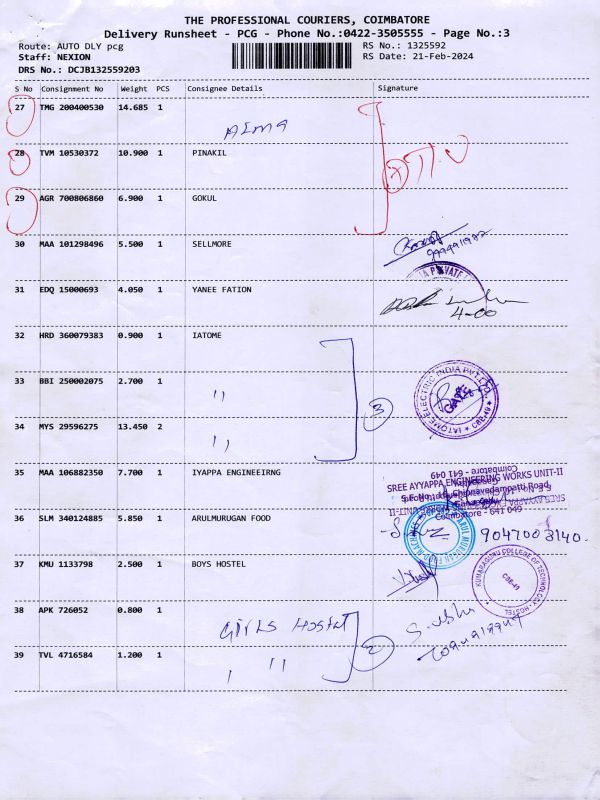 THE PROFESSIONAL COURIERS, COIMBATORE
Delivery Runsheet - PCG - Phone No.:0422-3505555 - Page No.:3
Route: AUTO DLY pcg RS No.: 1325592
Staff: NEXION RS Date: 21-Feb-2024
DRS No.: DCJB132559203
S No Consignment No Weight PCS Consignee Details Signature
27 TMG 200400530 14.685 1
28 TVM 10530372 10.900 1 PINAKIL
29 AGR 700806860 6.900 1 GOKUL
30 MAA 101298496 5.500 1 SELLMORE
31 EDQ 15000693 4.050 1 YANEE FATION
4-00
32 HRD 360079383 0.900 1 IATOME
33 BBI 250002075 2.700 1 ,,
IATOME ELECTRIC INDIA PVT. LTD. CBE-49
34 MYS 29596275 13.450 2 ,,
3
35 MAA 106882350 7.700 1 IYAPPA ENGINEEIRNG
SREE AYYAPPA ENGINEERING WORKS UNIT-II
S.F.No. Chinnavedampatti Road,
Coimbatore - 641 049
36 SLM 340124885 5.850 1 ARULMURUGAN FOOD
9047003140.
37 KMU 1133798 2.500 1 BOYS HOSTEL
KUMARAGURU COLLEGE OF TECHNOLOGY - HOSTEL
CBE-49
38 APK 726052 0.800 1 GIRLS HOSTEL
2
39 TVL 4716584 1.200 1 , ,,